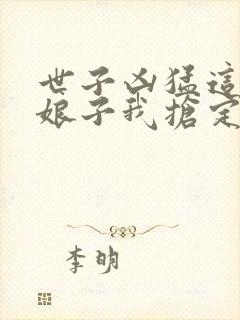 世子凶猛這
娘子我搶定
李明